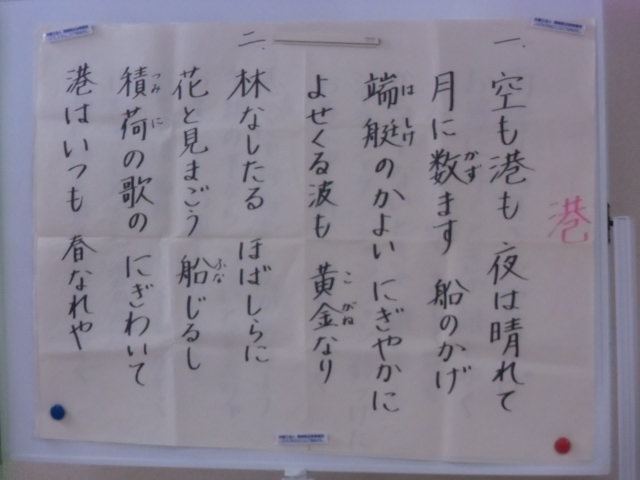 港
一、空も港も 夜は晴れて
月に数ます 船のかげ
端艇のかよい にぎやかに
よせくる波も 黄金なり
二、林なしたる ほばしらに
花と見まごう 船じるし
積荷の歌の にぎわいて
港はいつも 春なれや